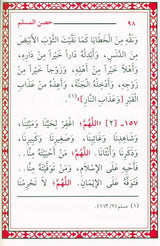 ٩٨ حصن المسلم
وَنَقِّهِ مِنَ الْخَطَايَا كَمَا نَقَّيْتَ الثَّوْبَ الأَبْيَضَ
مِنَ الدَّنَسِ، وَأَبْدِلْهُ دَاراً خَيْراً مِنْ دَارِهِ،
وَأَهْلاً خَيْراً مِنْ أَهْلِهِ، وَزَوْجاً خَيْراً مِنْ
زَوْجِهِ، وَأَدْخِلْهُ الْجَنَّةَ، وَأَعِذْهُ مِنْ عَذَابِ
الْقَبْرِ [وَعَذَابِ النَّارِ]»(١).
١٥٧ـ [٢] «اللَّهُمَّ! اغْفِرْ لِحَيِّنَا وَمَيِّتِنَا،
وَشَاهِدِنَا وَغَائِبِنَا، وَصَغِيرِنَا وَكَبِيرِنَا،
وَذَكَرِنَا وَأُنْثَانَا. اللَّهُمَّ! مَنْ أَحْيَيْتَهُ مِنَّا
فَأَحْيِهِ عَلَى الإِسْلاَمِ، وَمَنْ تَوَفَّيْتَهُ مِنَّا
فَتَوَفَّهُ عَلَى الإِيمَانِ. اللَّهُمَّ! لاَ تَحْرِمْنَا
(١) مسلم (٢/ ٦٦٣).